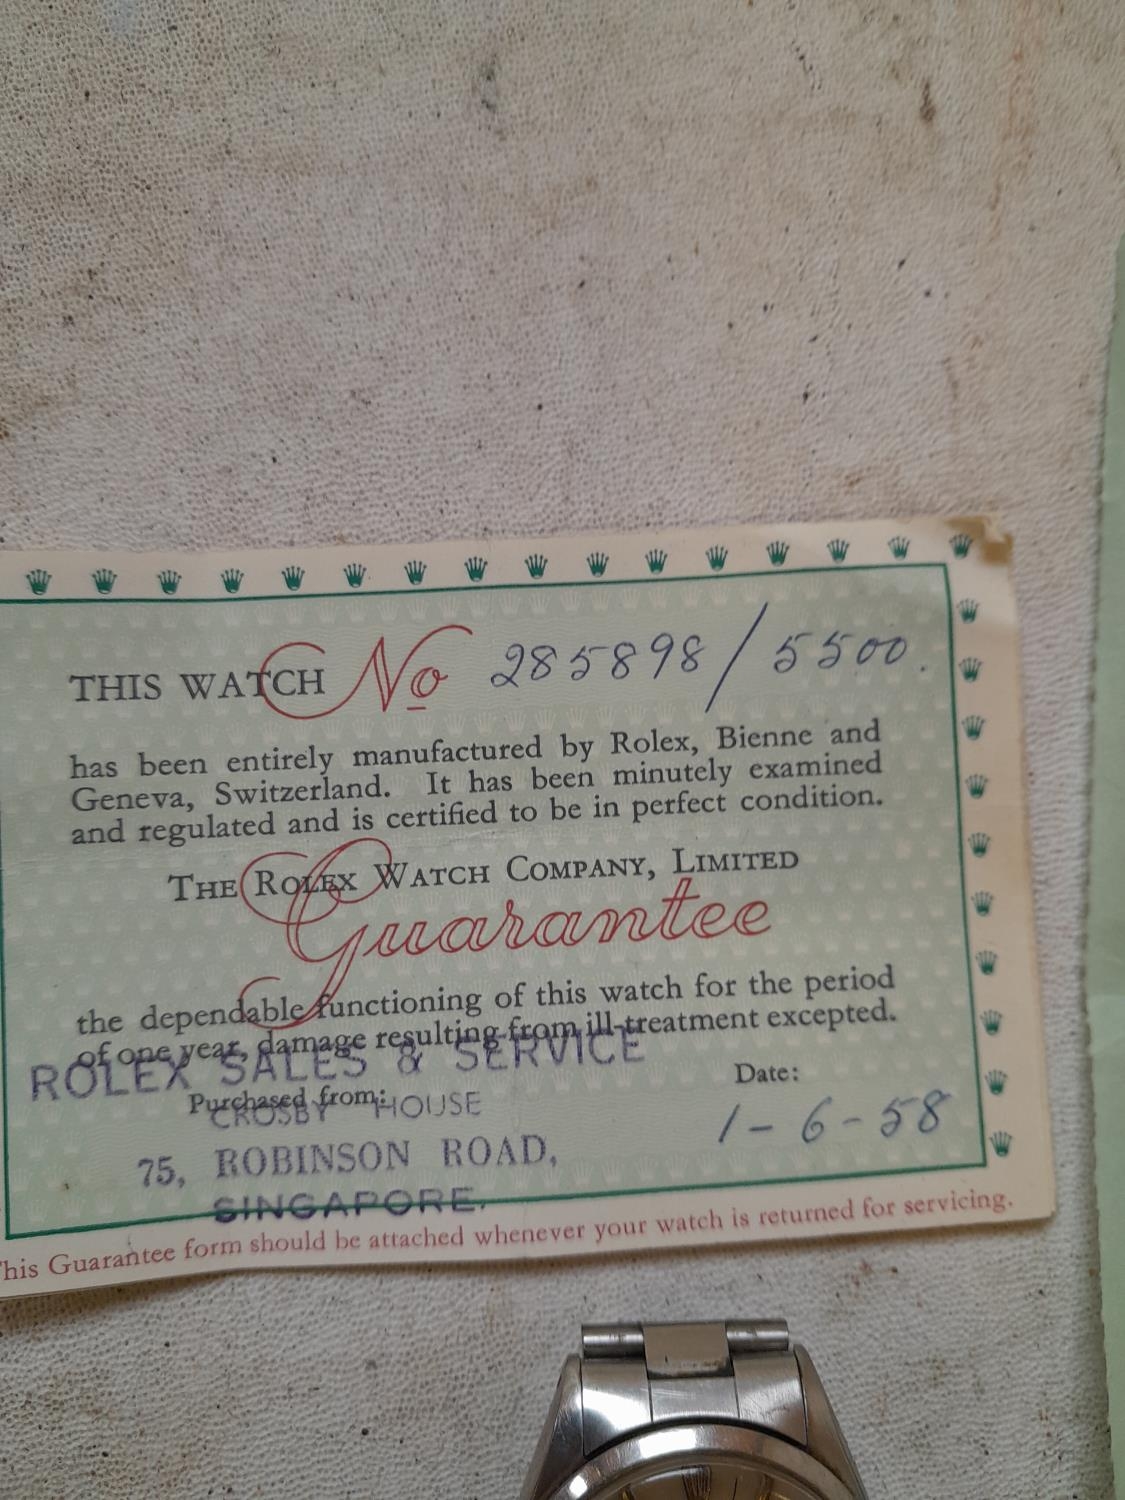 THIS WATCH No 285898/5500.
has been entirely manufactured by Rolex, Bienne and
Geneva, Switzerland. It has been minutely examined
and regulated and is certified to be in perfect condition.
THE ROLEX WATCH COMPANY, LIMITED
Guarantee
the dependable functioning of this watch for the period
of one year, damage resulting from ill-treatment excepted.
ROLEX SALES & SERVICE
Purchased from:
Date:
CROSBY HOUSE
1-6-58
75, ROBINSON ROAD,
SINGAPORE.
This Guarantee form should be attached whenever your watch is returned for servicing.